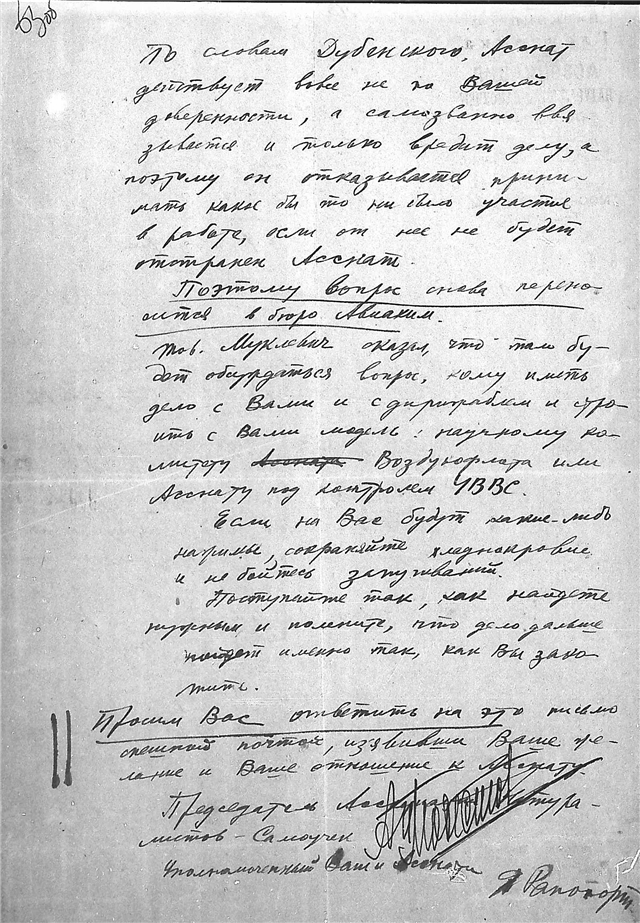 63 об
По словам Дубенского, Асснат
действует вовсе не по Вашей
доверенности, а самозванно ввя-
зывается и только вредит делу, а
поэтому он отказывается прини-
мать какое бы то ни было участие
в работе, если от нее не будет
отстранен Асснат.
Поэтому вопрос снова перено-
сится в бюро Авиахим.
тов. Муклевич сказал, что там бу-
дет обсуждаться вопрос, кому иметь
дело с Вами и с дирижаблем и стро-
ить с Вами модель: научному ко-
митету Асснат Воздухофлота или
Асснату под контролем УВВС.
Если на Вас будут какие-либо
нажимы, сохраняйте хладнокровие
и не бойтесь запугиваний.
Поступайте так, как найдете
нужным и помните, что дело дальше
пойдет именно так, как Вы
Просим Вас ответить на это письмо
спешной почтой, изъявивши Ваше же-
лание и Ваше отношение к Асснату
Председатель Ассоциации Натура-
листов-Самоучек
Уполномоченный Ваш и Ассната
Я Рапопорт.